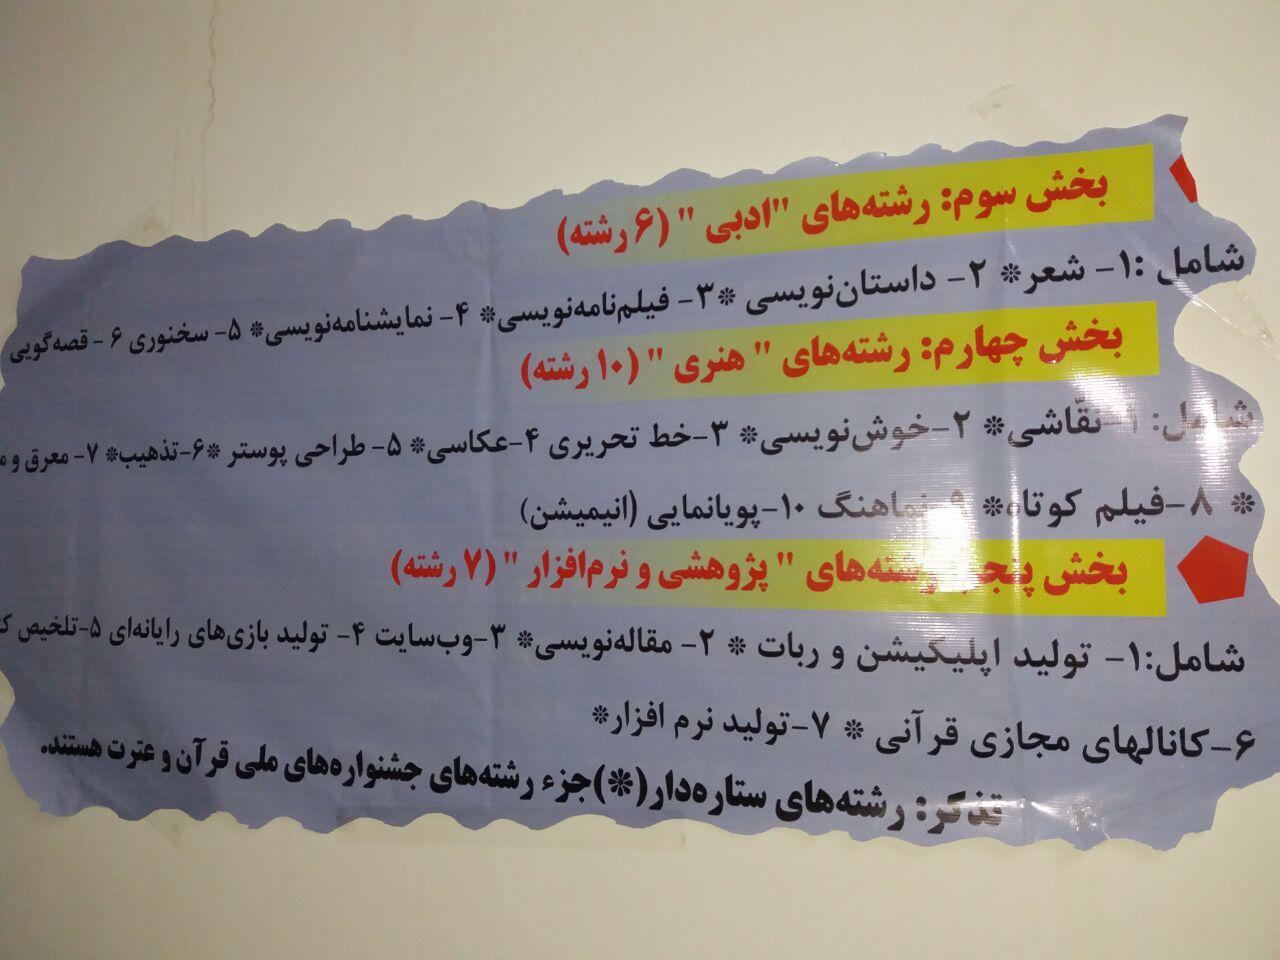 بخش سوم: رشته‌های "ادبی " (۶ رشته)
شامل :۱- شعر* ۲- داستان‌نویسی *۳- فیلم‌نامه‌نویسی* ۴- نمایشنامه‌نویسی* ۵- سخنوری ۶ - قصه‌گویی
بخش چهارم: رشته‌های " هنری " (۱۰ رشته)
شامل: ۱-نقّاشی* ۲-خوش‌نویسی* ۳-خط تحریری ۴-عکاسی* ۵- طراحی پوستر *۶-تذهیب* ۷- معرق و
* ۸-فیلم کوتاه* ۹-نماهنگ ۱۰-پویانمایی (انیمیشن)
بخش پنجم: رشته‌های " پژوهشی و نرم‌افزار " (۷ رشته)
شامل:۱- تولید اپلیکیشن و ربات * ۲- مقاله‌نویسی* ۳-وب‌سایت ۴- تولید بازی‌های رایانه‌ای ۵-تلخیص
۶-کانالهای مجازی قرآنی * ۷-تولید نرم افزار*
تذکر: رشته‌های ستاره‌دار(*)جزء رشته‌های جشنواره‌های ملی قرآن و عترت هستند.